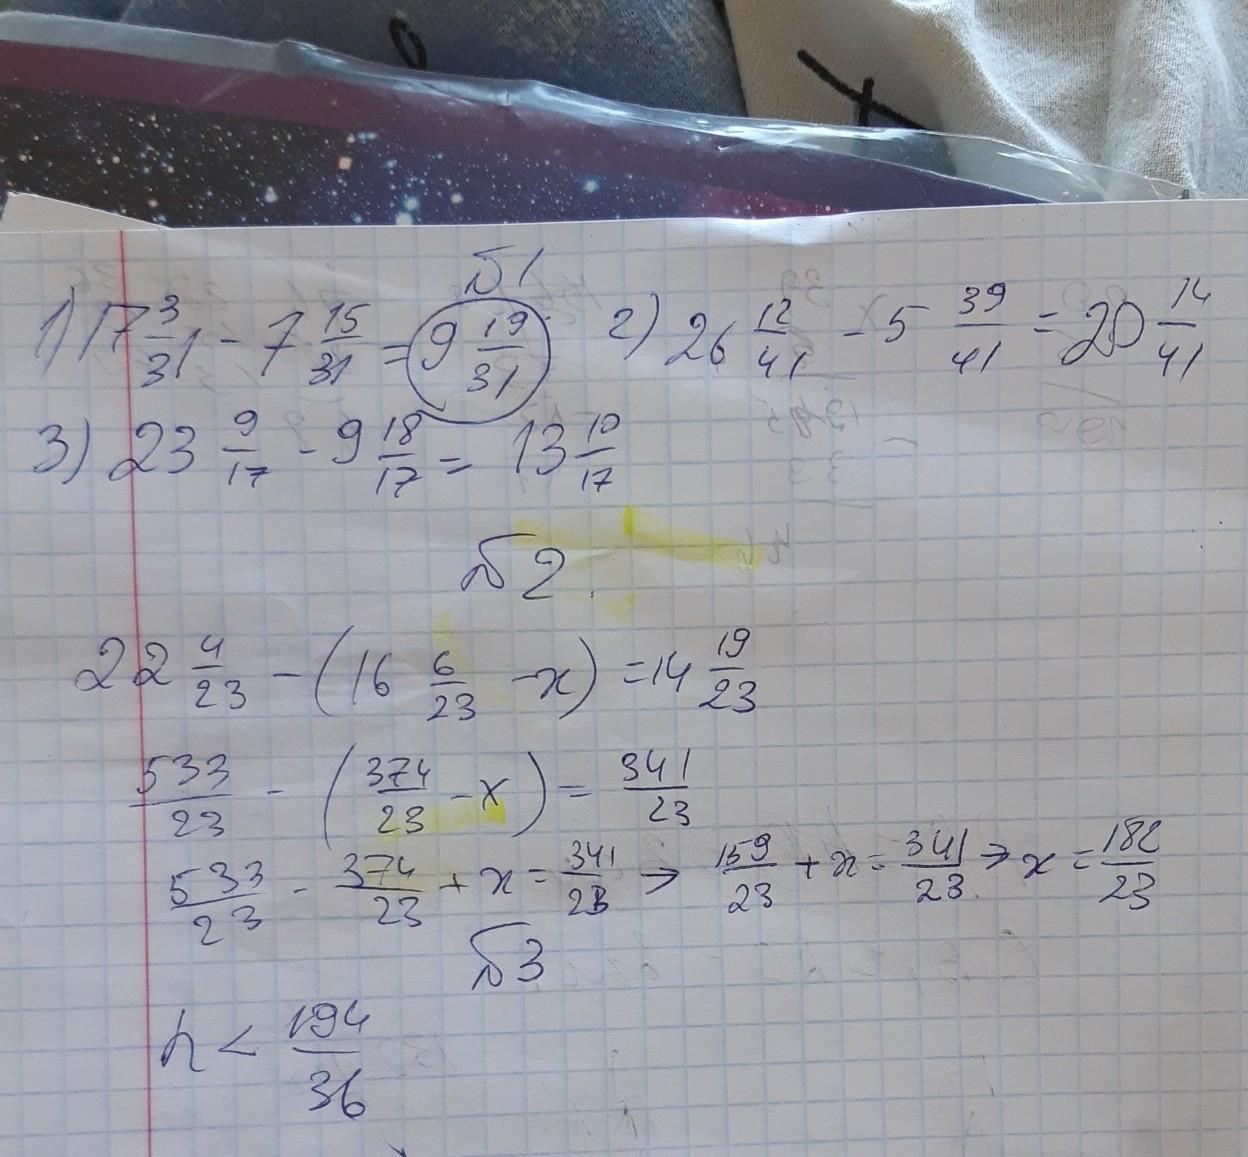 №1
1) 17 3/31 - 7 15/31 = 9 19/31 2) 26 12/41 - 5 39/41 = 20 14/41
3) 23 9/17 - 9 18/17 = 13 10/17
№2.
22 4/23 - (16 6/23 - x) = 14 19/23
533/23 - (374/23 - x) = 341/23
533/23 - 374/23 + x = 341/23 → 159/23 + x = 341/23 → x = 182/23
№3
n < 194/36